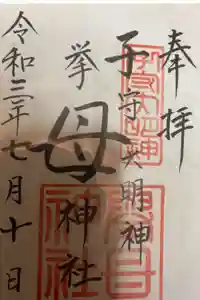 奉拝
子守大明神
挙母神社
令和三年七月十日